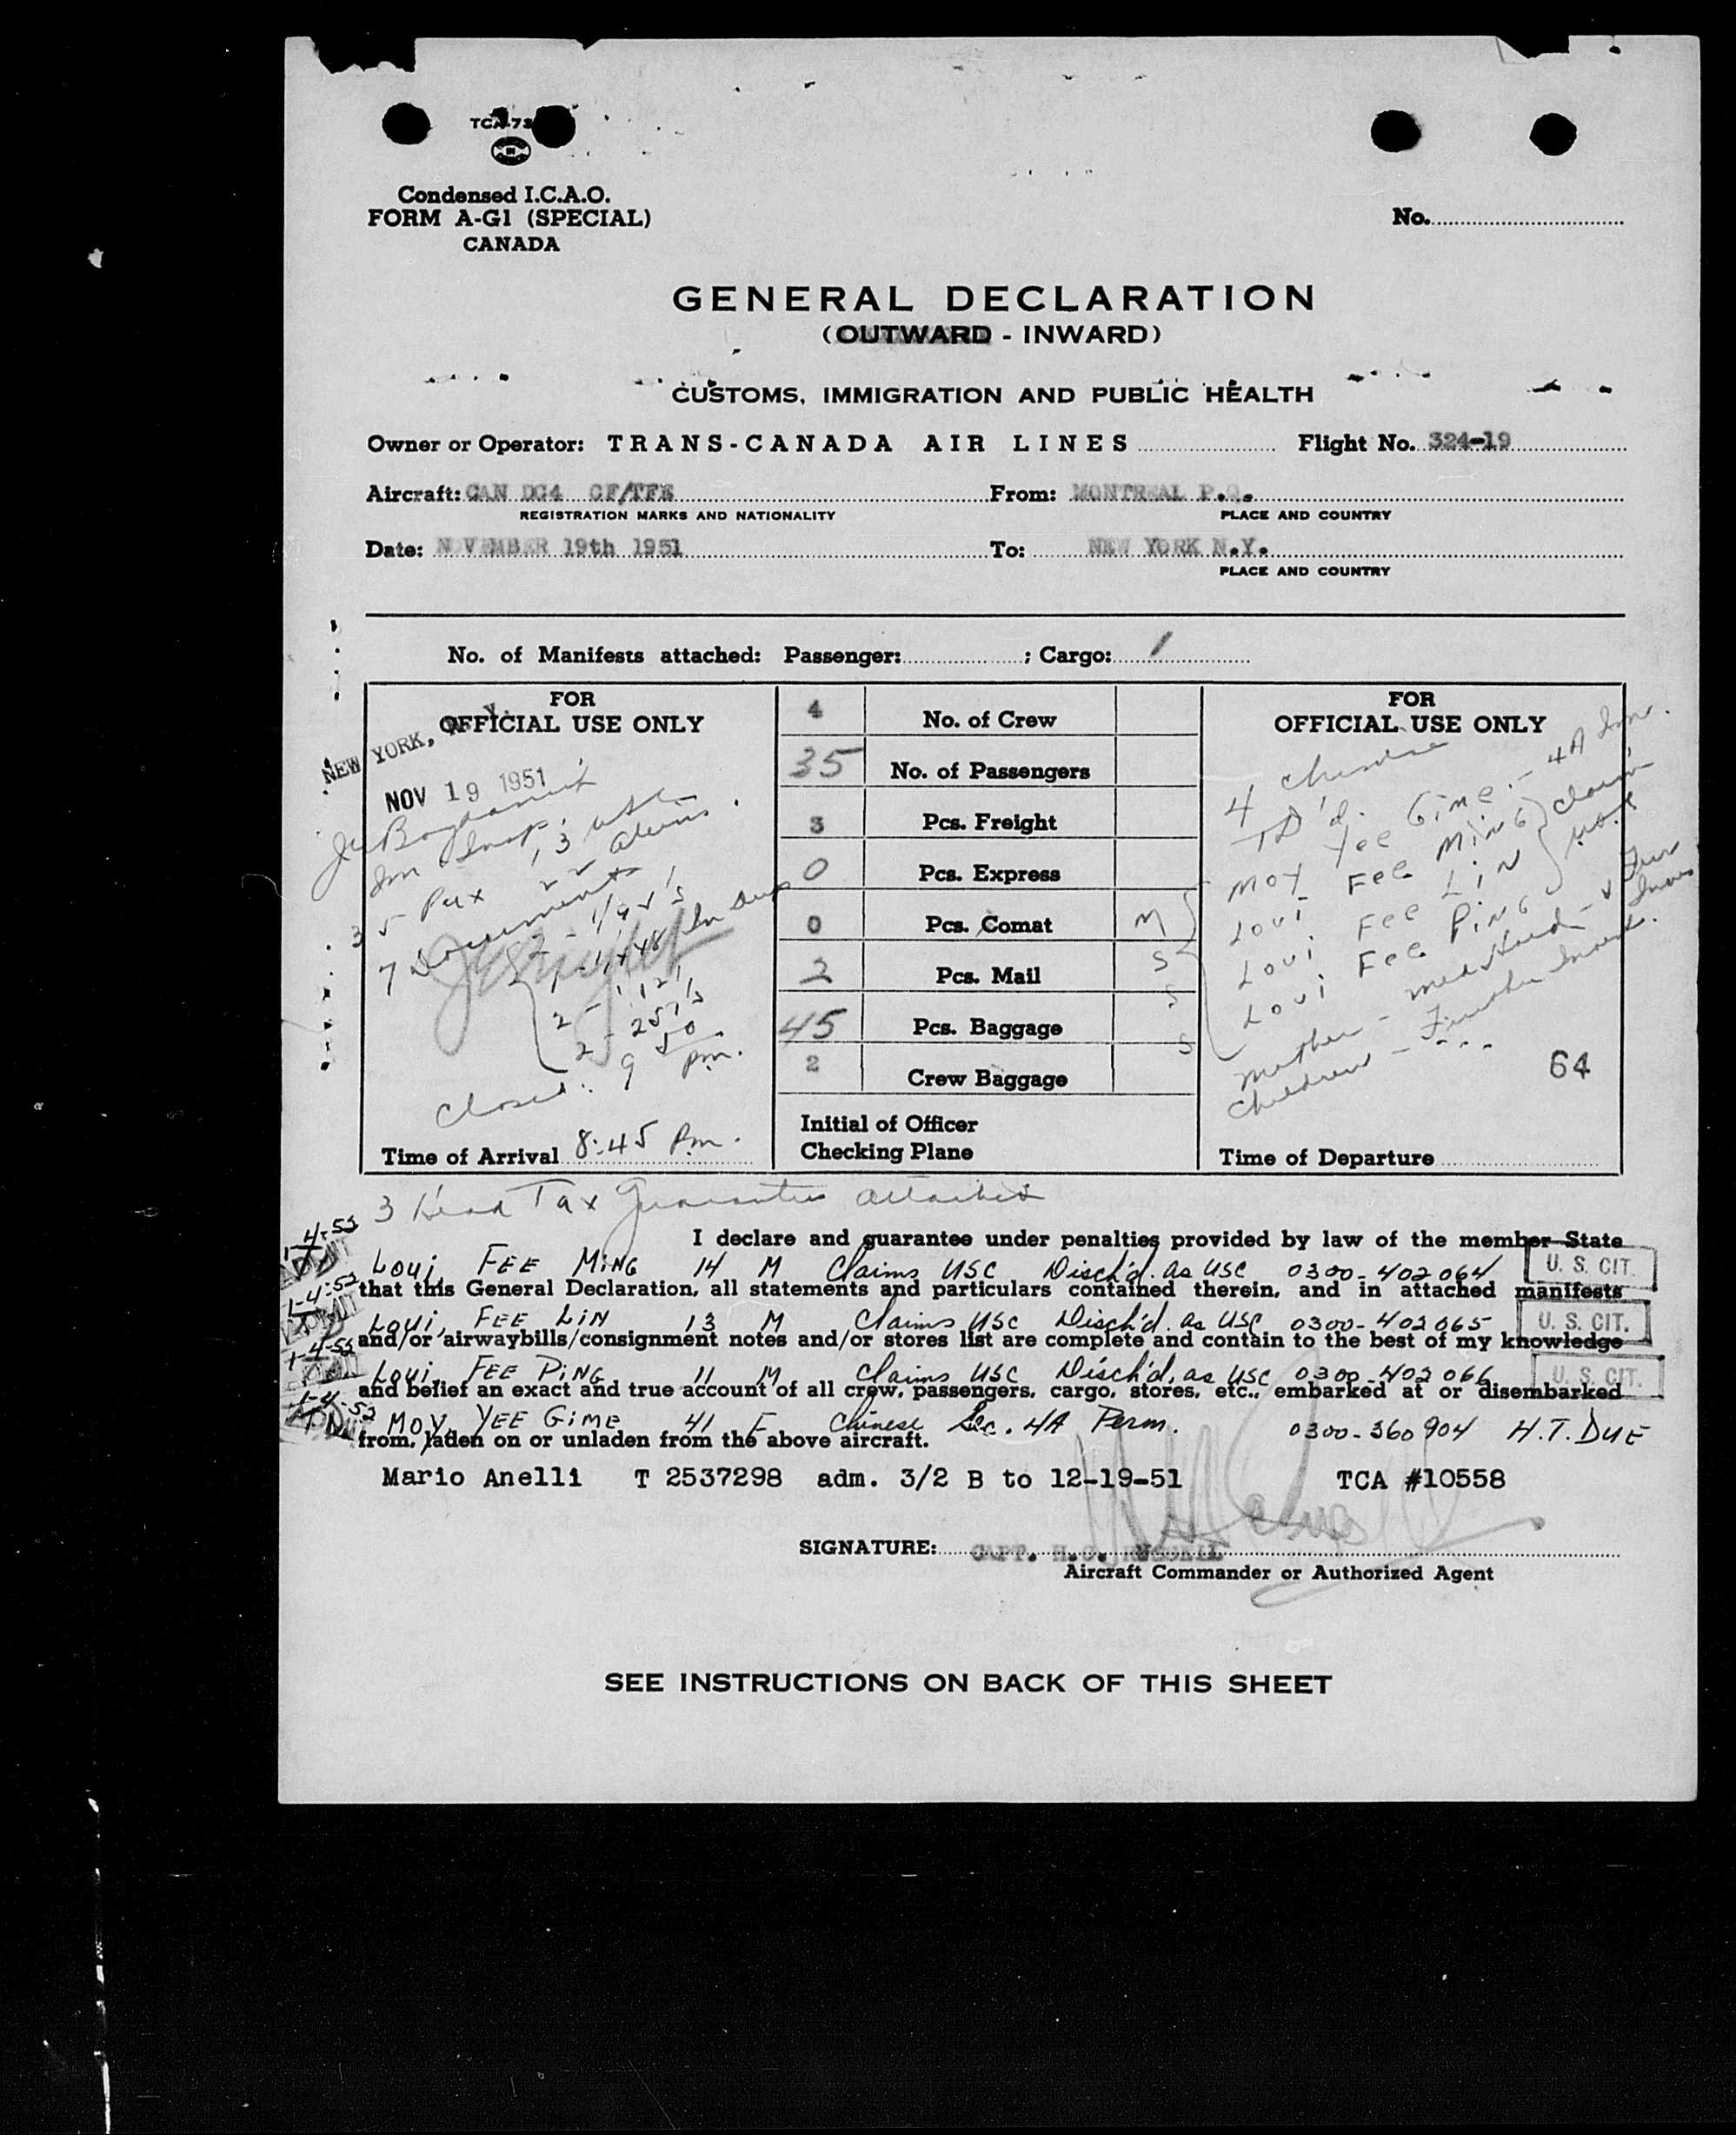 Condensed I.C.A.O.
FORM A-G1 (SPECIAL)
CANADA
No.
GENERAL DECLARATION
(OUTWARD - INWARD)
CUSTOMS, IMMIGRATION AND PUBLIC HEALTH
Owner or Operator: TRANS-CANADA AIR LINES Flight No. 324-19
Aircraft: CAN DC4 CF/TFE From: MONTREAL P.Q.
REGISTRATION MARKS AND NATIONALITY PLACE AND COUNTRY
Date: NOVEMBER 19th 1951 To: NEW YORK N.Y.
PLACE AND COUNTRY
No. of Manifests attached: Passenger: ; Cargo: 1
FOR
OFFICIAL USE ONLY
NEW YORK, N.Y.
NOV 19 1951
35 Pax
7 Documents
2 - 257's
Closed: 9 50 pm.
Time of Arrival 8:45 Pm.
4 No. of Crew
35 No. of Passengers
3 Pcs. Freight
0 Pcs. Express
0 Pcs. Comat
2 Pcs. Mail
45 Pcs. Baggage
2 Crew Baggage
Initial of Officer
Checking Plane
M
S
S
S
FOR
OFFICIAL USE ONLY
4 Chinese
TD'd.
Moy Yee Gime - 4A Imm.
Loui Fee Ming
Loui Fee Lin
Loui Fee Ping
Mother -
Children - Further
64
Time of Departure
3 Head Tax Guarantees attached
I declare and guarantee under penalties provided by law of the member State
1-4-52 Loui, FEE MING 14 M Claims USC Disch'd. as USC 0300-402064 U. S. CIT.
that this General Declaration, all statements and particulars contained therein, and in attached manifests
1-4-52 Loui, FEE LIN 13 M Claims USC Disch'd. as USC 0300-402065 U. S. CIT.
and/or airwaybills/consignment notes and/or stores list are complete and contain to the best of my knowledge
1-4-52 Loui, FEE PING 11 M Claims USC Disch'd. as USC 0300-402066 U. S. CIT.
and belief an exact and true account of all crew, passengers, cargo, stores, etc., embarked at or disembarked
1-4-52 MOY, YEE GIME 41 F Chinese Sec. 4A Perm. 0300-360904 H.T. DUE
from, laden on or unladen from the above aircraft.
Mario Anelli T 2537298 adm. 3/2 B to 12-19-51 TCA #10558
SIGNATURE: CAPT. H.C. RUSSELL
Aircraft Commander or Authorized Agent
SEE INSTRUCTIONS ON BACK OF THIS SHEET